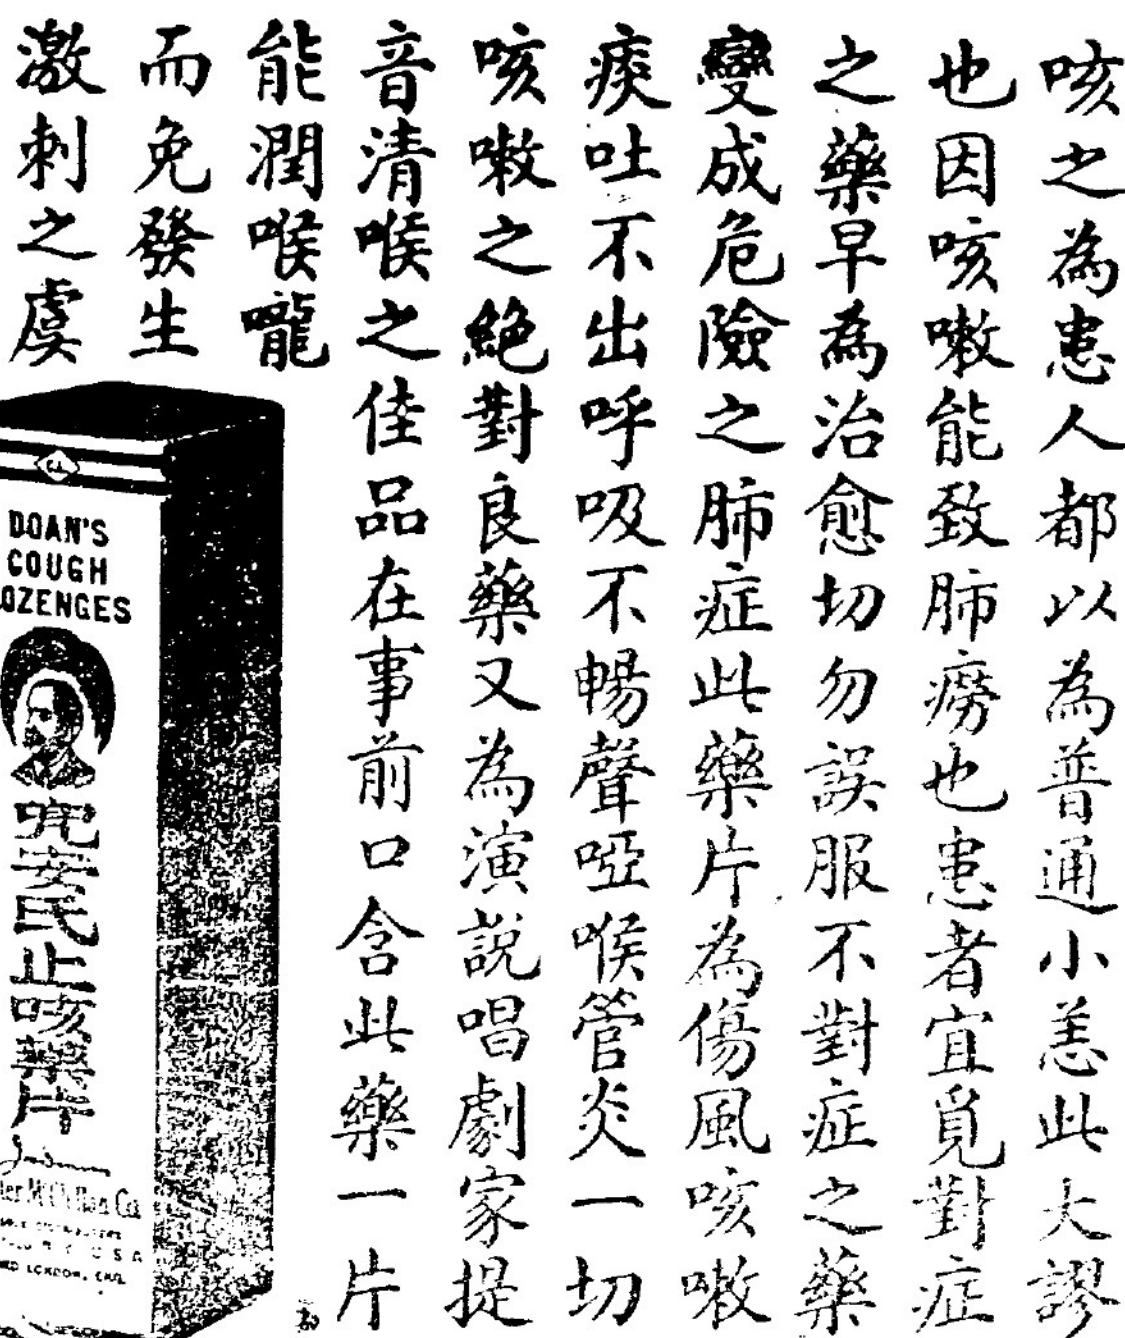 咳之為患人都以為普通小恙此大謬
也因咳嗽能致肺癆也患者宜覓對症
之藥早為治愈切勿誤服不對症之藥
變成危險之肺症此藥片為傷風咳嗽
痰吐不出呼吸不暢聲啞喉管炎一切
咳嗽之絕對良藥又為演說唱劇家提
音清喉之佳品在事前口含此藥一片
能潤喉嚨
而免發生
激刺之虞
DOAN'S
COUGH
LOZENGES
兜安氏止咳藥片